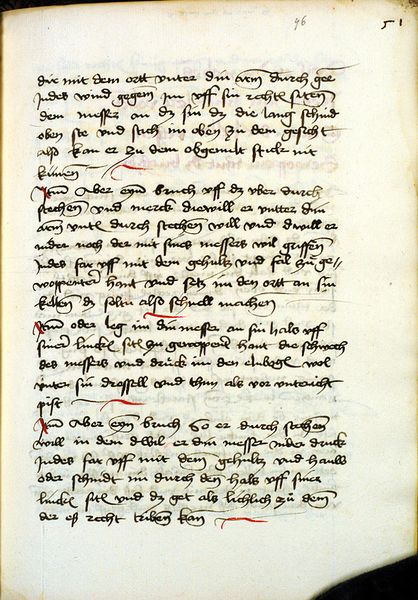 46
51
die mit dem ortt vnter din arm durch gee
Indes wind gegem im vff sin rechtn̄ siten
dem messer an dz sin dz die lang schnid
oben ste vnd stich im oben zu dem gesicht
also kan er zu dem obgemelt stuck nit
kumen
Itm̄ Aber eyn̄ bruch vff dz vber durch
stechen vnd merck diewill er vntter din
arm durch stechen will vnd dwill er
nider noch der mit sines messers wil griffen
Indes far vff mit dem gehultz vnd fal zu ge-
woppenter hant vnd setz im den ortt an sin
kellen dz soltu also schnell machen
Itm̄ oder leg im din messer an sin hals vff
siner linckn̄ sitn̄ zu gewoppenter hant die schnech
des messers vnd drück im den elnbogn̄ wol
vnter sin drossell vnd thun als vor vntericht
pist
Itm̄ Aber eyn̄ bruch So er durch stechen
woll in dem dwil er din messer nider druck
Indes far vff mit dem gehultz vnd hauw
oder schnidt im durch den hals vff siner
linckn̄ sitn̄ vnd dz get als lichlich zu dem
der eß recht triben kan